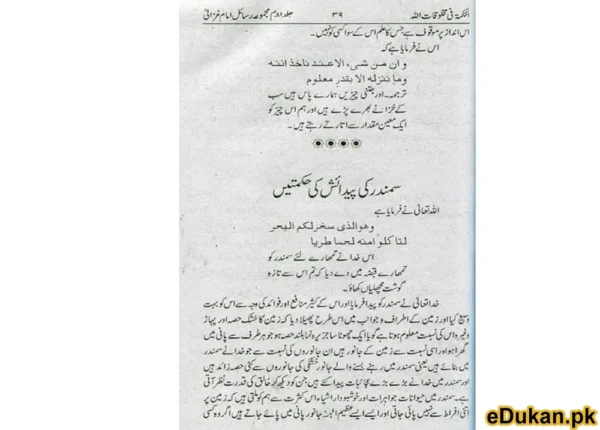 الحکمۃ فی مخلوقات اللہ ۳۹ جلد دوم مجموعہ رسائل امام غزالیؒ
اس انداز پر موقوف ہے جس کا علم اس کے سوا کسی کو نہیں۔
اس نے فرمایا ہے کہ
وان من شیء الا عندنا خزائنہ
وما ننزلہ الا بقدر معلوم
ترجمہ۔ اور جتنی چیزیں ہمارے پاس ہیں سب
کے خزانے بھرے پڑے ہیں اور ہم اس چیز کو
ایک معین مقدار سے اتارتے رہتے ہیں۔
سمندر کی پیدائش کی حکمتیں
اللہ تعالیٰ نے فرمایا ہے
وھوالذی سخرلکم البحر
لتاکلوا منه لحما طریا
اس خدا نے تمھارے لئے سمندر کو
تمھارے قبضہ میں دے دیا کہ تم اس سے تازہ
گوشت مچھلیاں کھاؤ۔
خدا تعالیٰ نے سمندر کو پیدا فرمایا اور اس کے کثیر منافع اور فوائد کی وجہ سے اس کو بہت
وسیع کیا اور زمین کے اطراف و جوانب میں اس طرح پھیلا دیا کہ زمین کا خشک حصہ اور پہاڑ
وغیرہ اس کی نسبت معلوم ہوتا ہے گویا ایک چھوٹا سا جزیرہ نما بلند حصہ ہو جو ہر طرف سے پانی میں
گھرا ہو اور اسی نسبت سے زمین کے جانور ہیں ان جانوروں کی نسبت سے جو خدا نے سمندر
میں بنائے ہیں یعنی سمندر میں رہنے بسنے والے جانور خشکی کے جانوروں سے کئی حصہ زائد ہیں
اور سمندر میں خدا نے بڑے بڑے عجائبات پیدا کئے ہیں جن کو دیکھ کر خالق کی قدرت نظر آتی
ہے۔ سمندر میں حیوانات جواہرات اور خوشبودار اشیاء اس کثرت سے ہم کو ملتی ہیں کہ زمین پر
اتنی افراط سے نہیں پائی جاتی اور ایسے ایسے عظیم الجثہ جانور پانی میں پائے جاتے ہیں اگر وہ کسی
eDukan.pk